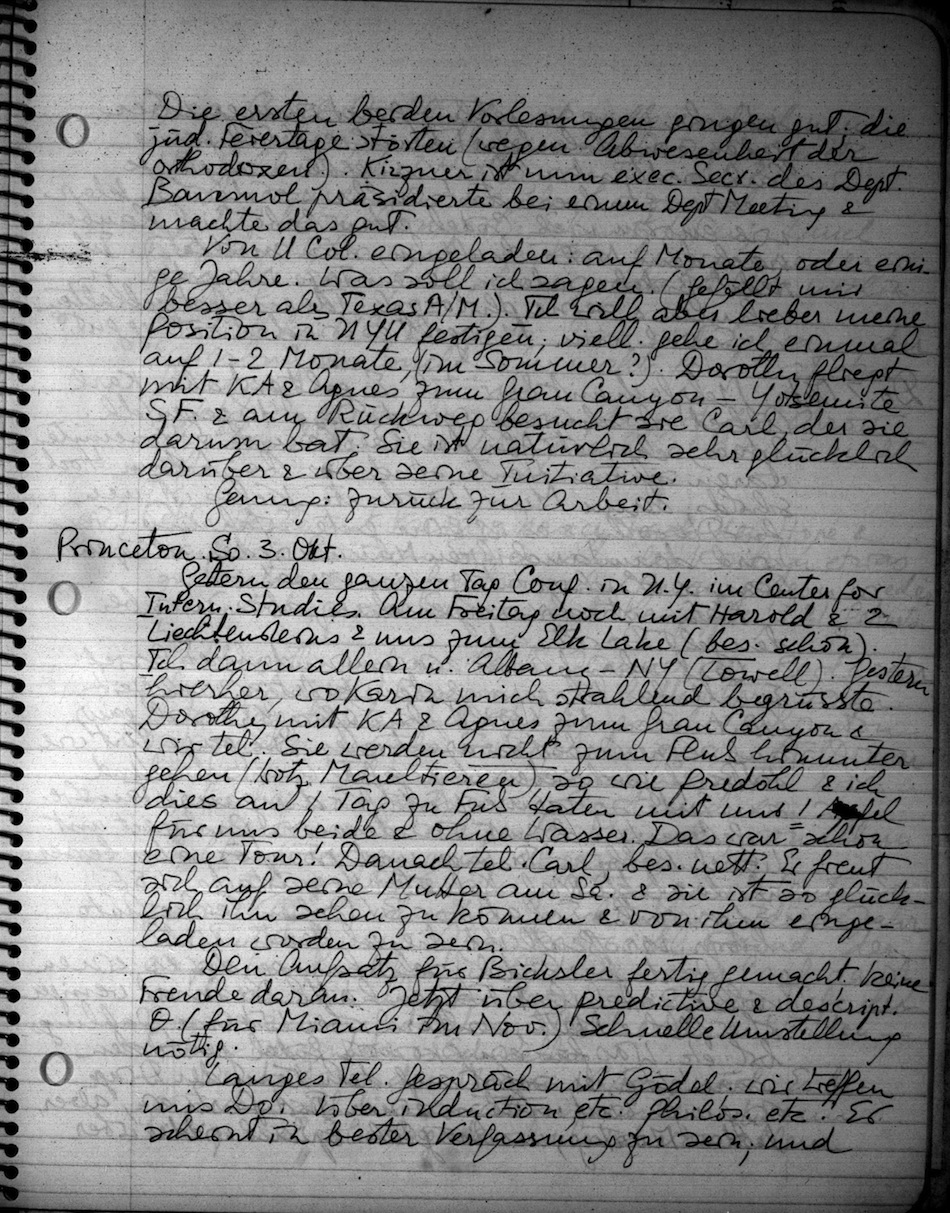 Die ersten beiden Vorlesungen gingen gut; die
jüd. Feiertage störten (wegen Abwesenheit der
orthodoxen). Kirzner ist nun exec. Secr. des Dept.
Baumol präsidierte bei einem Dept Meeting &
machte das gut.
Von U Col. eingeladen: auf Monate, oder eini-
ge Jahre. Was soll ich sagen. (gefällt mir
besser als Texas A/M.). Ich will aber lieber meine
Position in NYU festigen; viell. gehe ich einmal
auf 1-2 Monate, (im Sommer?). Dorothy fliegt
mit KA & Agnes zum Gran Canyon – Yosemite
S.F. & am Rückweg besucht sie Carl, der sie
darum bat. Sie ist natürlich sehr glücklich
darüber & über seine Initiative.
Genug: zurück zur Arbeit.
Princeton. So. 3. Okt.
Gestern den ganzen Tag Conf. in N.Y. im Center for
Intern. Studies. Am Freitag noch mit Harold & 2
Liechtensteins & uns zum Elk Lake (bes. schön).
Ich dann allein n. Albany – NY (Lowell). Gestern
hierher, wo Karin mich strahlend begrüsste.
Dorothy mit KA & Agnes zum Gran Canyon &
wir tel. Sie werden nicht zum Fluß hinunter
gehen (trotz Maultieren), so wie Predöhl & ich
dies an 1 Tag zu Fuß taten mit nur 1 Apfel
für uns beide & ohne Wasser. Das war schon
eine Tour! Danach tel. Carl, bes. nett. Er freut
sich auf seine Mutter am Sa. & sie ist so glück-
lich ihn sehen zu können & von ihm einge-
laden worden zu sein.
Den Aufsatz für Bichsler fertig gemacht. Keine
Freude daran. Jetzt über predictive & descript.
Θ. (für Miami im Nov.) Schnelle Umstellung
nötig.
Langes Tel. Gespräch mit Gödel. Wir treffen
uns Do. Über induction etc. philos. etc. Er
scheint in bester Verfassung zu sein, und